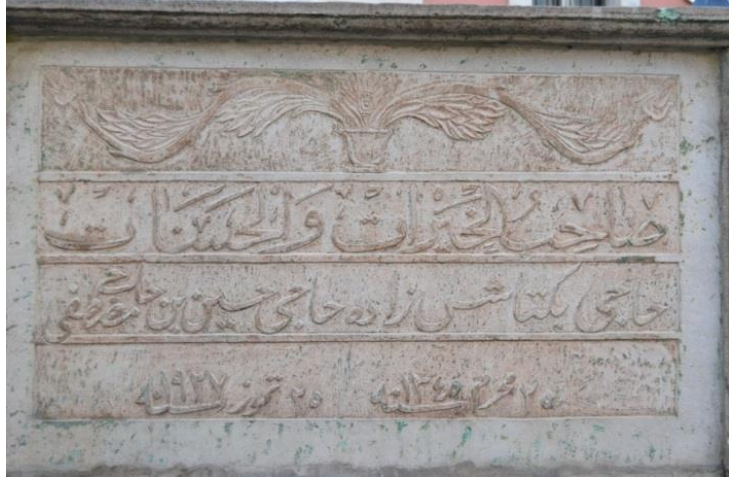 صاحب الخيرات والحسنات
حاجی بكتاش زاده حاجی حسين بن حاجی مصطفی
٢٥ محرم سنه ١٣٤٥ ٢٥ تموز سنه ١٩٢٧